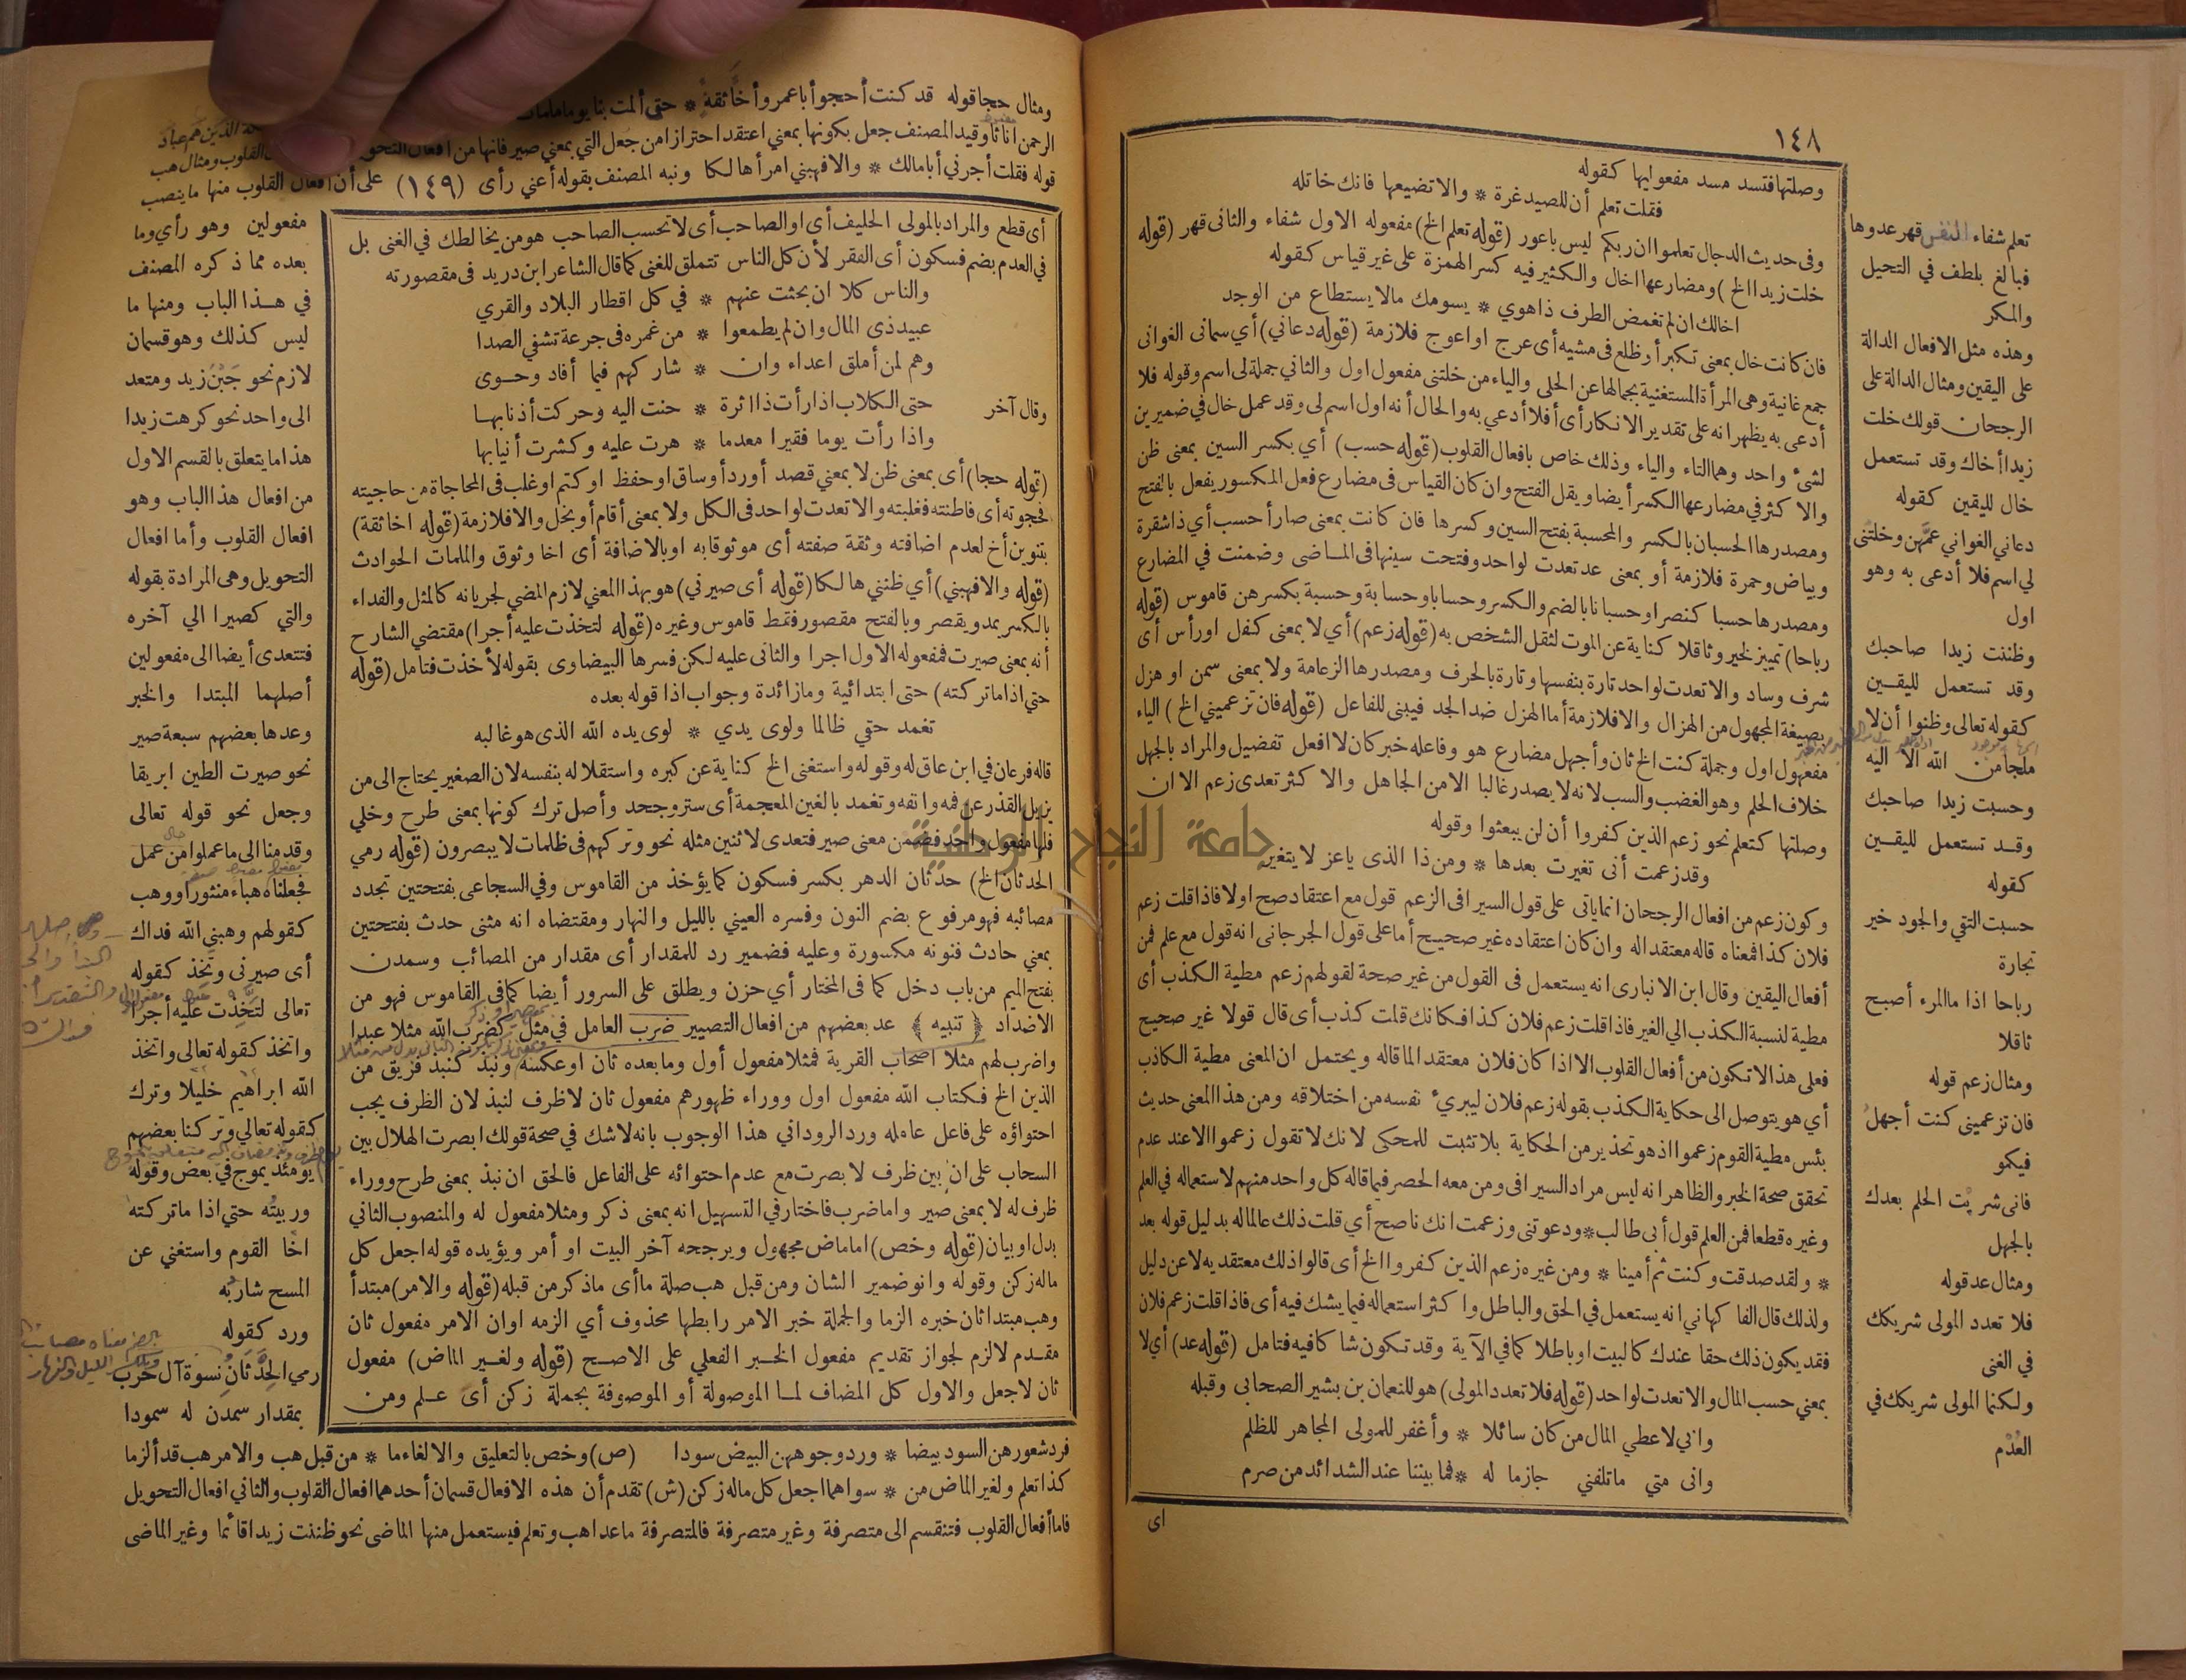 ١٤٨
وصلتها فتسد مسد مفعوليها كقوله
فقلت تعلم أن للصيد غرة * والا تضيعها فانك خاتله
وفى حديث الدجال تعلموا ان ربكم ليس باعور (قوله تعلم الخ) مفعوله الاول شفاء والثانى قهر (قوله
خلت زيدا الخ) ومضارعها اخال والكثير فيه كسر الهمزة على غير قياس كقوله
اخالك ان لم تغمض الطرف ذا هوي * يسومك مالا يستطاع من الوجد
فان كانت خال بمعنى تكبر أو ظلع فى مشيه أى عرج او اعوج فلازمة (قوله دعاني) أي سمانى الغوانى
جمع غانية وهى المرأة المستغنية بجمالها عن الحلى والياء من خلتنى مفعول اول والثاني جملة لى اسم وقوله فلا
أدعى به يظهر انه على تقدير الانكار أى أفلا أدعي به والحال أنه اول اسم لى وقد عمل خال في ضميرين
لشئ واحد وهما التاء والياء وذلك خاص بافعال القلوب (قوله حسب) أي بكسر السين بمعنى ظن
والاكثر في مضارعها الكسر أيضا ويقل الفتح وان كان القياس فى مضارع فعل المكسور يفعل بالفتح
ومصدرها الحسبان بالكسر والمحسبة بفتح السين وكسرها فان كانت بمعنى صار أحسب أي ذا شقرة
وبياض وحمرة فلازمة أو بمعنى عد تعدت لواحد وفتحت سينها فى الماضى وضمنت في المضارع
ومصدرها حسبا كنصرا وحسبانا بالضم والكسر وحسابا وحسابة وحسبة بكسرهن قاموس (قوله
رباحا) تمييز لخير وثاقلا كناية عن الموت لثقل الشخص به (قوله زعم) أي لا بمعنى كفل او رأس أى
شرف وساد والا تعدت لواحد تارة بنفسها وتارة بالحرف ومصدرها الزعامة ولا بمعنى سمن او هزل
بصيغة المجهول من الهزال والا فلازمة أما الهزل ضد الجد فيبنى للفاعل (قوله فان تزعميني الخ) الياء
مفعول اول وجملة كنت الخ ثان وأجهل مضارع هو وفاعله خبر كان لا افعل تفضيل والمراد بالجهل
خلاف الحلم وهو الغضب والسب لانه لا يصدر غالبا الا من الجاهل والا كثر تعدى زعم الا ان
وصلتها كتعلم نحو زعم الذين كفروا أن لن يبعثوا وقوله
وقد زعمت أنى تغيرت بعدها * ومن ذا الذى ياعز لا يتغير
وكون زعم من افعال الرجحان انما ياتى على قول السيرافى الزعم قول مع اعتقاد صح اولا فاذا قلت زعم
فلان كذا فمعناه قاله معتقدا له وان كان اعتقاده غير صحيح أما على قول الجرجانى انه قول مع علم فمن
أفعال اليقين وقال ابن الانبارى انه يستعمل فى القول من غير صحة لقولهم زعم مطية الكذب أى
مطية لنسبة الكذب الي الغير فاذا قلت زعم فلان كذا فكانك قلت كذب أى قال قولا غير صحيح
فعلى هذا لا تكون من أفعال القلوب الا اذا كان فلان معتقدا لما قاله ويحتمل ان المعنى مطية الكاذب
أي هو يتوصل الى حكاية الكذب بقوله زعم فلان ليبرئ نفسه من اختلاقه ومن هذا المعنى حديث
بئس مطية القوم زعموا اذ هو تحذير من الحكاية بلا تثبت للمحكى لانك لا تقول زعموا الا عند عدم
تحقق صحة الخبر والظاهر انه ليس مراد السيرافى ومن معه الحصر فيما قاله كل واحد منهم لاستعماله في العلم
وغيره قطعا فمن العلم قول أبى طالب * ودعوتنى وزعمت انك ناصح أي قلت ذلك عالما له بدليل قوله بعد
* ولقد صدقت وكنت ثم أمينا * ومن غيره زعم الذين كفروا الخ أى قالوا ذلك معتقديه لا عن دليل
ولذلك قال الفاكهاني انه يستعمل في الحق والباطل واكثر استعماله فيما يشك فيه أى فاذا قلت زعم فلان
فقد يكون ذلك حقا عندك كالبيت او باطلا كما في الآية وقد تكون شاكا فيه فتامل (قوله عد) أي لا
بمعني حسب المال والا تعدت لواحد (قوله فلا تعدد المولى) هو للنعمان بن بشير الصحابى وقبله
وانى لاعطي المال من كان سائلا * وأغفر للمولى المجاهر للظلم
وانى متي ماتلفنى جازما له * فما بيننا عند الشدائد من صرم
اى
تعلم شفاء النفس قهر عدوها
فبالغ بلطف في التحيل
والمكر
وهذه مثل الافعال الدالة
على اليقين ومثال الدالة على
الرجحان قولك خلت
زيدا أخاك وقد تستعمل
خال لليقين كقوله
دعاني الغواني عمهن وخلتنى
لي اسم فلا أدعى به وهو
اول
وظننت زيدا صاحبك
وقد تستعمل لليقين
كقوله تعالى وظنوا أن لا
ملجأ من الله الا اليه
وحسبت زيدا صاحبك
وقد تستعمل لليقين
كقوله
حسبت التقي والجود خير
تجارة
رباحا اذا ما المرء أصبح
ثاقلا
ومثال زعم قوله
فان تزعمينى كنت أجهل
فيكمو
فانى شريت الحلم بعدك
بالجهل
ومثال عد قوله
فلا تعدد المولى شريكك
في الغنى
ولكنما المولى شريكك في
العدم
ومثال حجا قوله قد كنت أحجو أبا عمرو أخا ثقة * حتى ألمت بنا يوما ملمات
الرحمن اناثا وقيد المصنف جعل بكونها بمعنى اعتقد احترازا من جعل التي بمعني صير فانها من افعال التحويل
قوله فقلت أجرني أبا مالك * والا فهبني امرأ هالكا ونبه المصنف بقوله أعني رأى (١٤٩) على أن افعال القلوب منها ما ينصب
أى قطع والمراد بالمولى الحليف أى او الصاحب أى لا تحسب الصاحب هو من يخالطك في الغنى بل
في العدم بضم فسكون أى الفقر لأن كل الناس تتملق للغنى كما قال الشاعر ابن دريد فى مقصورته
والناس كلا ان بحثت عنهم * في كل اقطار البلاد والقري
عبيد ذى المال وان لم يطمعوا * من غمره فى جرعة تشفي الصدا
وهم لمن أملق اعداء وان * شاركهم فيما أفاد وحوى
وقال آخر حتى الكلاب اذا رأت ذا اثرة * حنت اليه وحركت أذنابها
واذا رأت يوما فقيرا معدما * هرت عليه وكشرت أنيابها
(قوله حجا) أى بمعنى ظن لا بمعني قصد أو رد أو ساق او حفظ او كتم او غلب فى المحاجاة من حاجيته
فحجوته أى فاطنته فغلبته والا تعدت لواحد فى الكل ولا بمعنى أقام أو بخل والا فلازمة (قوله اخا ثقة)
بتنوين أخ لعدم اضافته وثقة صفته أى موثوقا به او بالاضافة أى اخا وثوق والملمات الحوادث
(قوله والا فهبني) أي ظنني هالكا (قوله أى صيرني) هو بهذا المعني لازم المضي لجريانه كالمثل والفداء
بالكسر يمد ويقصر وبالفتح مقصور فقط قاموس وغيره (قوله لتخذت عليه أجرا) مقتضي الشارح
أنه بمعنى صيرت فمفعوله الاول اجرا والثانى عليه لكن فسرها البيضاوى بقوله لأخذت فتامل (قوله
حتي اذا ماتركته) حتى ابتدائية وما زائدة وجواب اذا قوله بعده
تغمد حتي ظالما ولوى يدي * لوى يده الله الذى هو غالبه
قاله فرعان في ابن عاق له وقوله واستغنى الخ كناية عن كبره واستقلاله بنفسه لان الصغير يحتاج الى من
يزيل القذر عن فمه وانفه وتغمد بالغين المعجمة أى ستر وجحد وأصل ترك كونها بمعنى طرح وخلي
فلها مفعول واحد فضمن معنى صير فتعدى لاثنين مثله نحو وتركهم فى ظلمات لا يبصرون (قوله رمي
الحدثان الخ) حدثان الدهر بكسر فسكون كما يؤخذ من القاموس وفي السجاعى بفتحتين تجدد
مصائبه فهو مرفوع بضم النون وفسره العيني بالليل والنهار ومقتضاه انه مثنى حدث بفتحتين
بمعني حادث فنونه مكسورة وعليه فضمير رد للمقدار أى مقدار من المصائب وسمدن
بفتح الميم من باب دخل كما فى المختار أي حزن ويطلق على السرور أيضا كما فى القاموس فهو من
الاضداد (تنبيه) عد بعضهم من افعال التصيير ضرب العامل في مثل كضرب الله مثلا عبدا
واضرب لهم مثلا اصحاب القرية فمثلا مفعول أول وما بعده ثان او عكسه ونبذ كنبذ فريق من
الذين الخ فكتاب الله مفعول اول ووراء ظهورهم مفعول ثان لا ظرف لنبذ لان الظرف يجب
احتواؤه على فاعل عامله ورد الروداني هذا الوجوب بانه لا شك في صحة قولك ابصرت الهلال بين
السحاب على ان بين ظرف لا بصرت مع عدم احتوائه على الفاعل فالحق ان نبذ بمعنى طرح ووراء
ظرف له لا بمعنى صير واما ضرب فاختار في التسهيل انه بمعنى ذكر ومثلا مفعول له والمنصوب الثاني
بدل او بيان (قوله وخص) اما ماض مجهول ويرجحه آخر البيت او أمر ويؤيده قوله اجعل كل
ماله زكن وقوله وانو ضمير الشان ومن قبل هب صلة ما أى ماذكر من قبله (قوله والامر) مبتدأ
وهب مبتدا ثان خبره الزما والجملة خبر الامر رابطها محذوف أي الزمه او ان الامر مفعول ثان
مقدم لالزم لجواز تقديم مفعول الخبر الفعلي على الاصح (قوله ولغير الماض) مفعول
ثان لاجعل والاول كل المضاف لما الموصولة أو الموصوفة بجملة زكن أى علم ومن
مفعولين وهو رأي وما
بعده مما ذكره المصنف
في هذا الباب ومنها ما
ليس كذلك وهو قسمان
لازم نحو جبن زيد ومتعد
الى واحد نحو كرهت زيدا
هذا ما يتعلق بالقسم الاول
من افعال هذا الباب وهو
افعال القلوب وأما افعال
التحويل وهى المرادة بقوله
والتي كصيرا الي آخره
فتتعدى أيضا الى مفعولين
أصلهما المبتدا والخبر
وعدها بعضهم سبعة صير
نحو صيرت الطين ابريقا
وجعل نحو قوله تعالى
وقدمنا الى ما عملوا من عمل
فجعلناه هباء منثورا ووهب
كقولهم وهبنى الله فداك
أى صيرنى وتخذ كقوله
تعالى لتخذت عليه أجرا
واتخذ كقوله تعالى واتخذ
الله ابراهيم خليلا وترك
كقوله تعالي وتركنا بعضهم
يومئذ يموج في بعض وقوله
وربيته حتي اذا ماتركته
اخا القوم واستغني عن
المسح شاربه
ورد كقوله
رمي الحدثان نسوة آل حرب
بمقدار سمدن له سمودا
فرد شعورهن السود بيضا * ورد وجوههن البيض سودا (ص) وخص بالتعليق والالغاء ما * من قبل هب والامر هب قد ألزما
كذا تعلم ولغير الماض من * سواهما اجعل كل ماله زكن (ش) تقدم أن هذه الافعال قسمان أحدهما افعال القلوب والثاني افعال التحويل
فاما أفعال القلوب فتنقسم الى متصرفة وغير متصرفة فالمتصرفة ماعدا هب وتعلم فيستعمل منها الماضى نحو ظننت زيدا قائما وغير الماضى
جامعة النجاح الوطنية